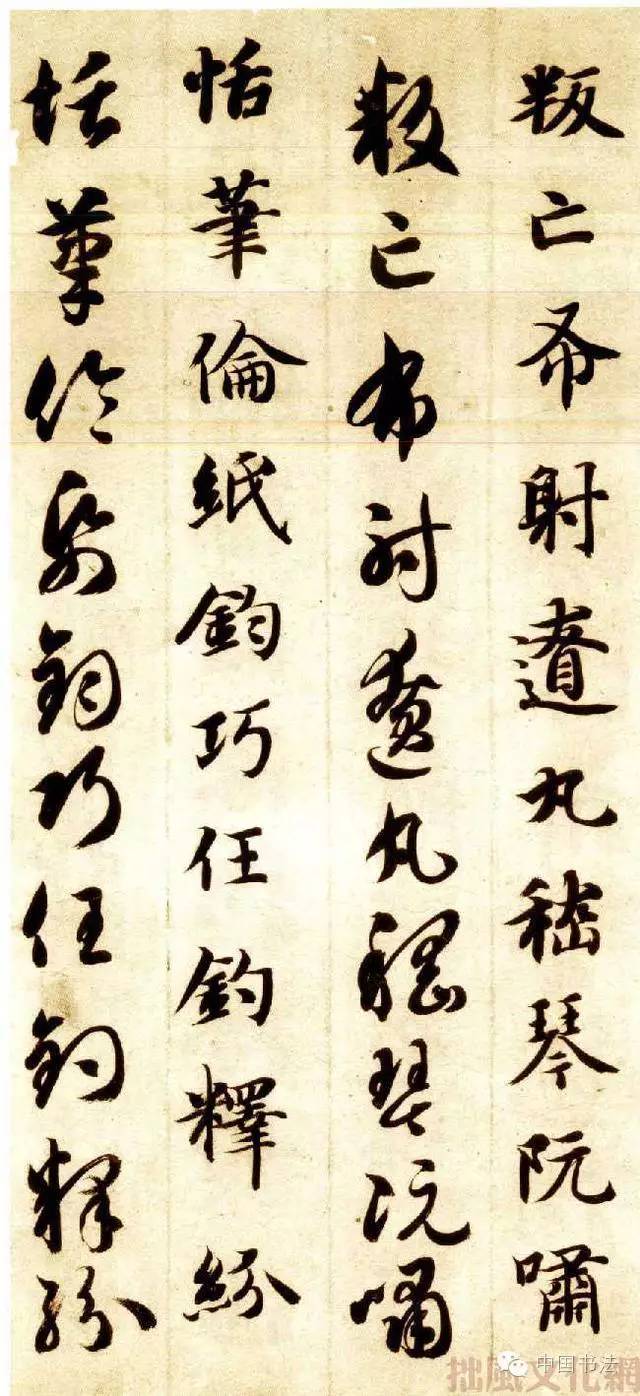 叛亡布射遼丸嵇琴阮嘯
叛亡布射遼丸嵇琴阮嘯
恬筆倫紙鈞巧任釣釋紛
恬筆倫紙鈞巧任釣釋紛
中国书法
拙風文化網